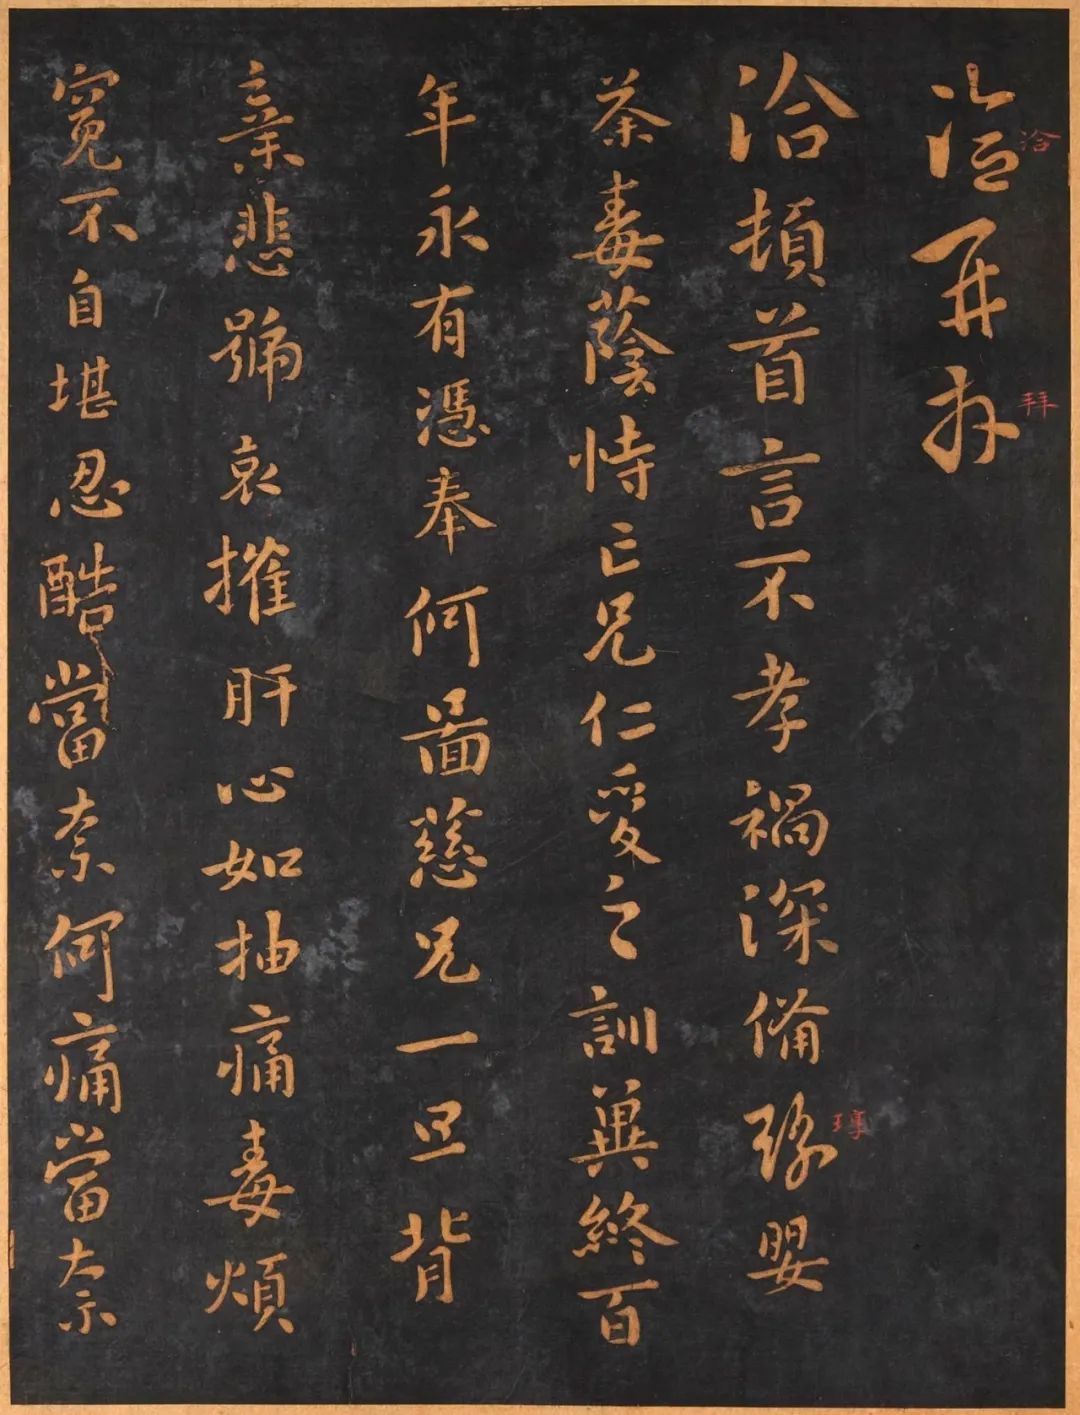 洽再拜
洽頓首言不孝禍深備㐱嬰
荼毒蔭恃亡兄仁愛之訓冀終百
年永有憑奉何圖慈兄一旦背
棄悲號哀摧肝心如抽痛毒煩
冤不自堪忍酷當奈何痛當奈
洽
拜